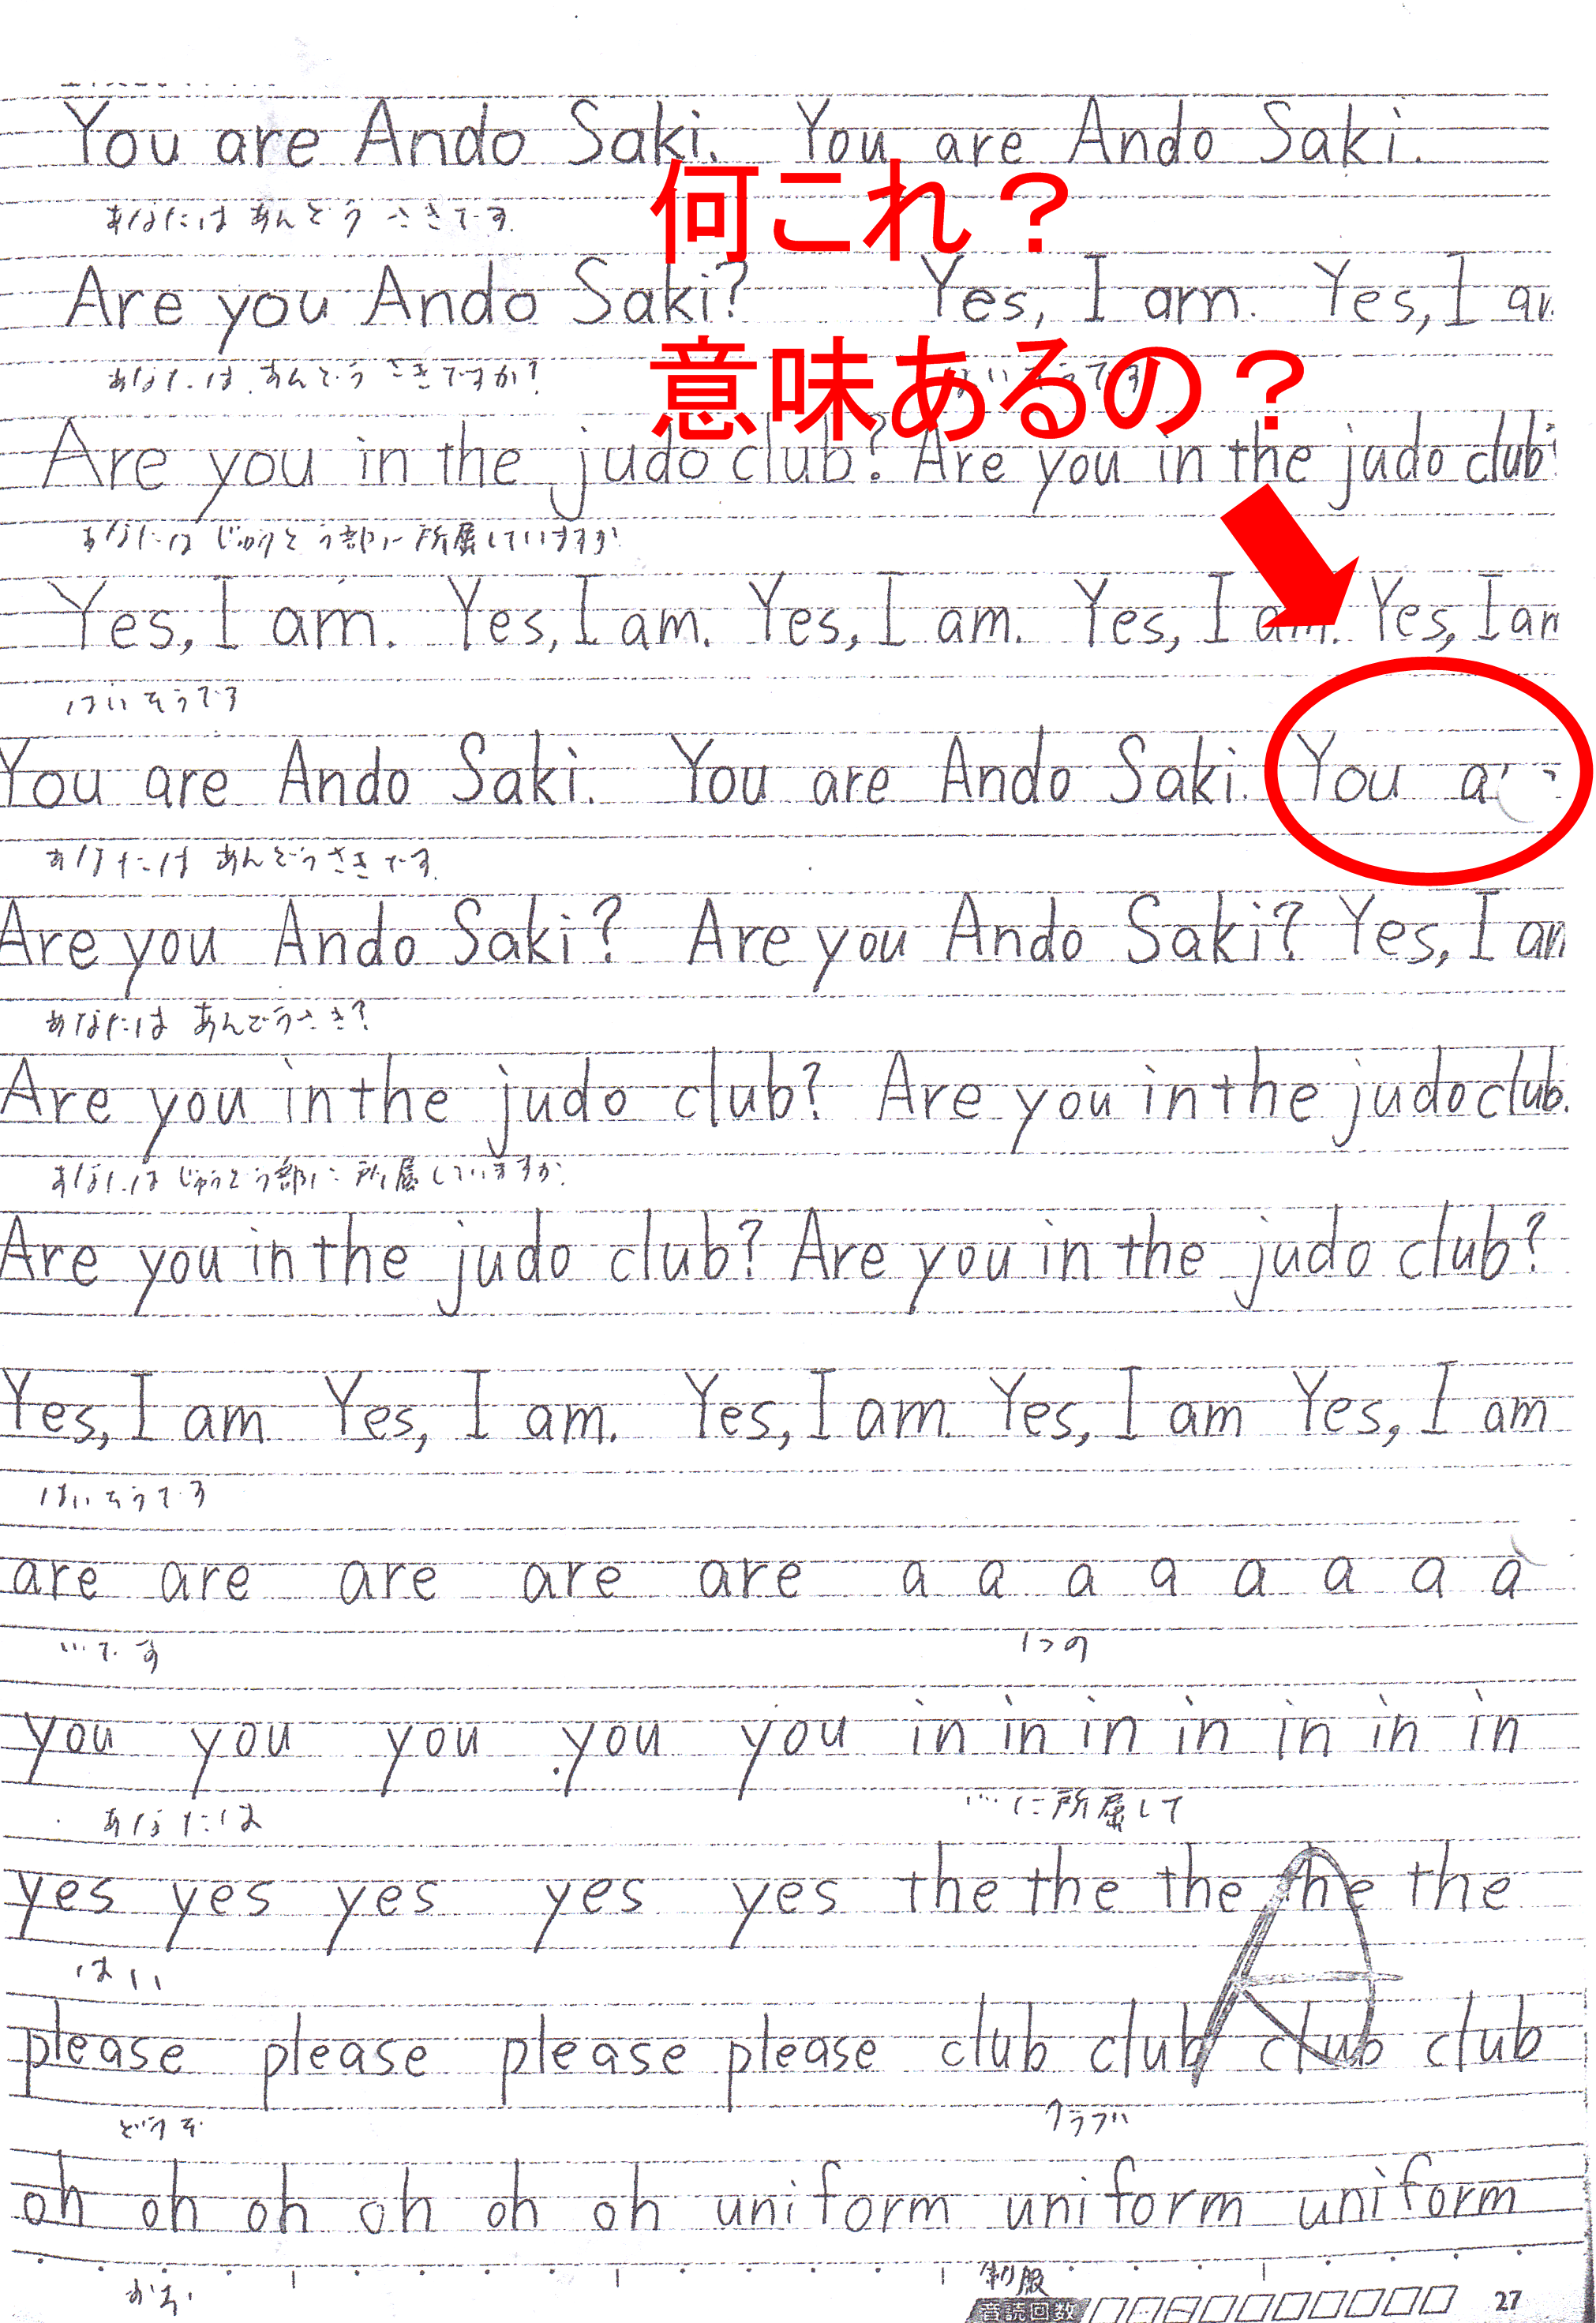 You are Ando Saki. You are Ando Saki.
何これ？
あなたは あんどう さきです.
Are you Ando Saki? Yes, I am. Yes, I am
意味あるの？
あなたは あんどう さきですか? はいそうです
Are you in the judo club? Are you in the judo club?
あなたは じゅうどう部に所属していますか
Yes, I am. Yes, I am. Yes, I am. Yes, I am. Yes, I am
はいそうです
You are Ando Saki. You are Ando Saki. You a
あなたは あんどうさきです.
Are you Ando Saki? Are you Ando Saki? Yes, I am
あなたは あんどうさき?
Are you in the judo club? Are you in the judo club.
あなたは じゅうどう部に所属していますか.
Are you in the judo club? Are you in the judo club?
Yes, I am Yes, I am. Yes, I am. Yes, I am Yes, I am
はいそうです
are are are are are a a a a a a a a
…です 1つの
you you you you you in in in in in in in
あなたは …に所属して
yes yes yes yes yes the the the the the
A
はい
please please please please club club club club
どうぞ クラブ
oh oh oh oh oh oh uniform uniform uniform
おお 制服
音読回数 27